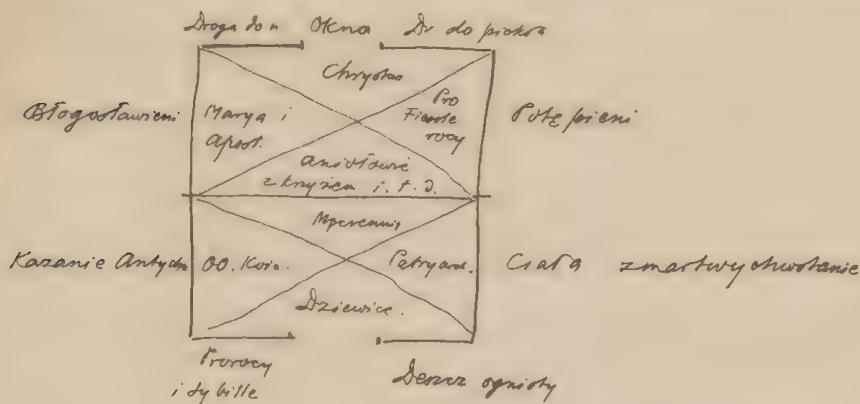 Droga do n Okna Dr do piekła
Chrystus
Błogosławieni Marya i Apost. Potępieni
Aniołowie
z krzyżem i. t. d.
Kazanie Antychr OO. Kośc. Patryarch. Ciała zmartwychwstanie
Dziewice.
Prorocy
i sybille
Deszcz ognisty